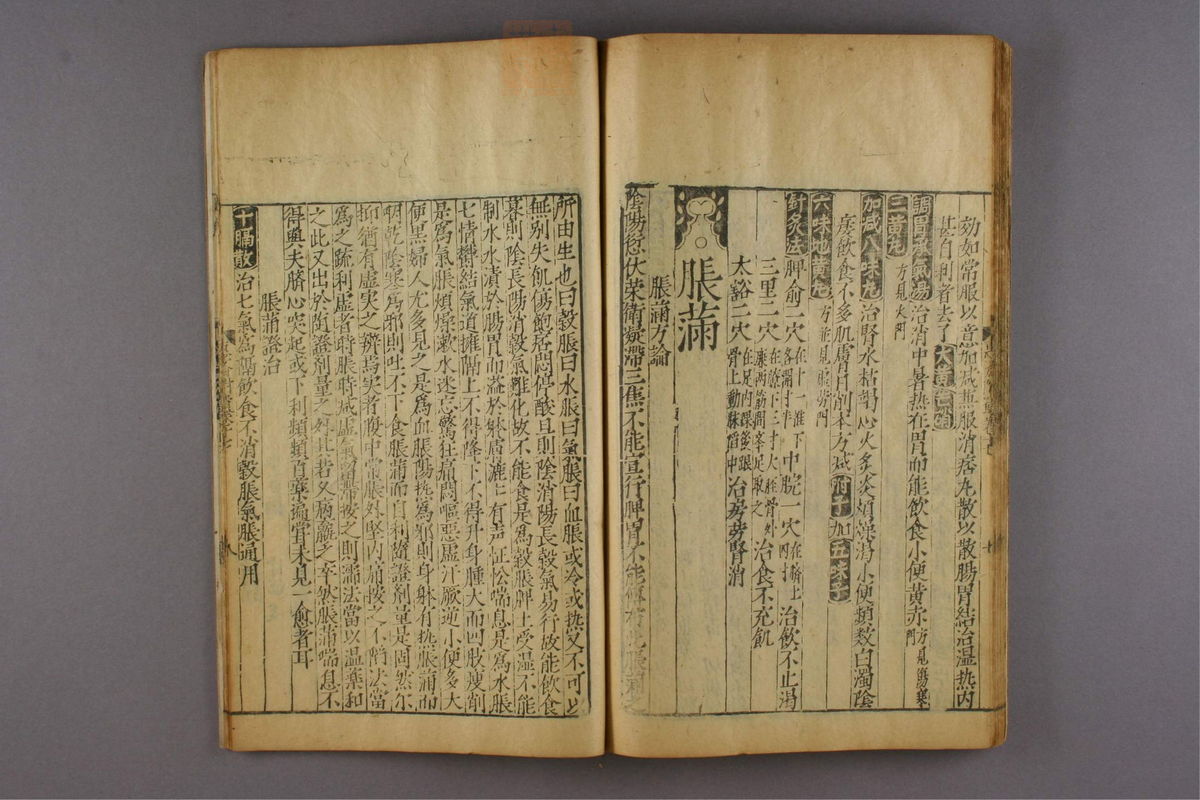 効如常服以意加减兼服消痞丸散以散腸胃結治温热内
甚自利者去了大黄芒硝
調胃承氣湯治消中暑热在胃而能飲食小便黄赤方見傷寒門
三黄丸方見火門
加减八味丸治腎水枯竭心火炙炎煩燥渴小便頻数白濁陰
痿飲食不多肌膚日削本方减附子加五味子
六味地黄丸方並見虚勞門
針灸法脾俞二穴在十一椎下各開寸半中脘一穴在臍上四寸治飲不止渴
三里二穴在膝下三寸大胫骨外廉两筋間宰足取之治食不充飢
太谿二穴在足内踝後跟骨上動脉陷中治房勞腎消
脹滿
脹滿方論
陰陽愆伏榮衛凝滯三焦不能宣行脾胃不能
所由生也曰穀脹曰水脹曰氣脹曰血脹或冷或热又不可以
無别失飢傷飽居悶停酸旦則陰消陽長穀氣易行故能飲食
暮則陰長陽消穀氣難化故不能食是爲穀脹脾土受湿不能
制水水漬於腸胃而溢於躰膚漉漉有声怔忪喘息是爲水脹
七情欝結氣道擁隔上不得降下不得升身腫大而四肢瘦削
是爲氣脹煩燥漱水迷忘驚狂痛悶嘔惡虚汗厥逆小便多大
便黒婦人尤多見之是爲血脹陽热爲邪則身躰有热脹滿而
咽乾陰寒爲邪則吐不下食脹滿而自利隨證剤量是固然尔
抑猶有虚実之辨焉実者腹中常脹外坚内痛按之不陷法當
爲之疏利虚者時脹時减虚氣留滯按之則濡法當以温藥和
之此又出於随證剤量之外其若久病羸乏卒然脹滿喘息不
得與夫臍心突起或下利頻頻百藥遍嘗未見一愈者耳
脹滿證治
十膈散治七氣爲膈飲食不消穀脹氣脹通用